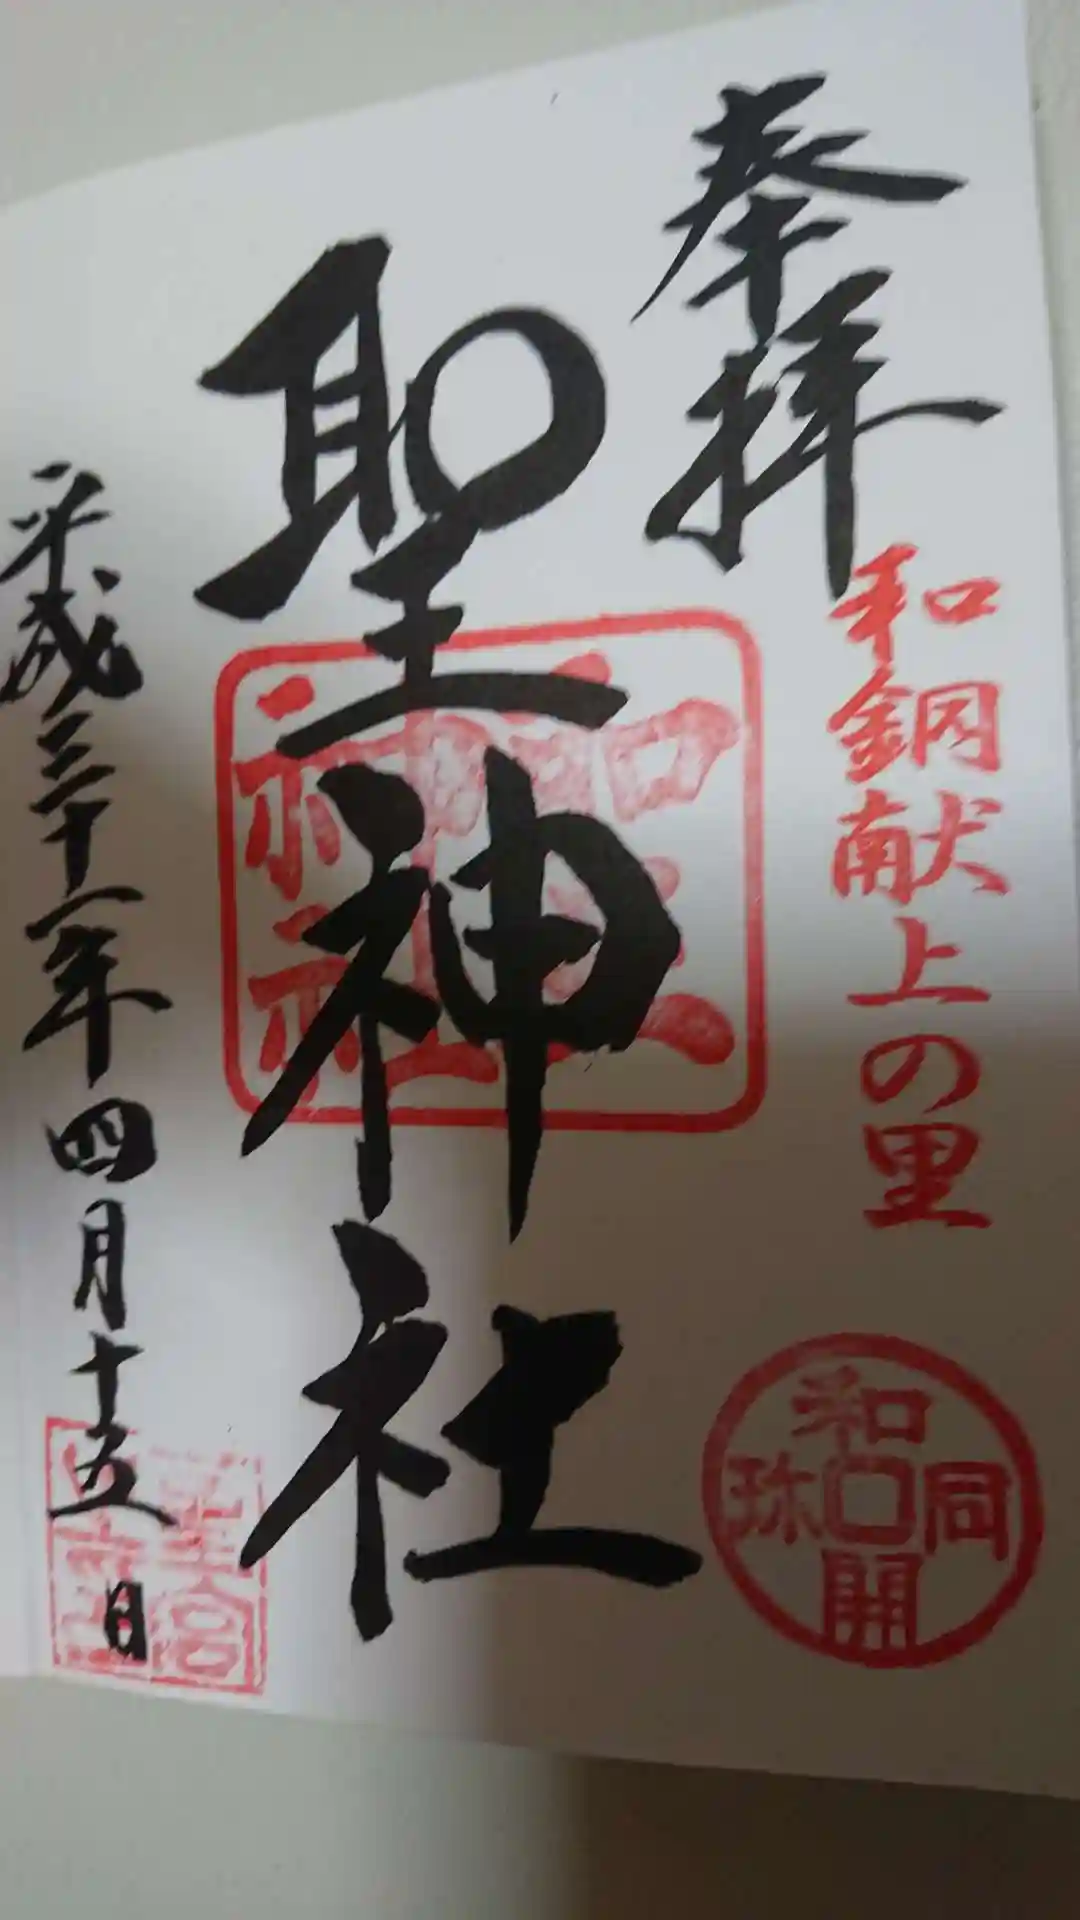 奉拝
和銅献上の里
和同開珎
聖神社
聖神社
平成三十一年四月十五日